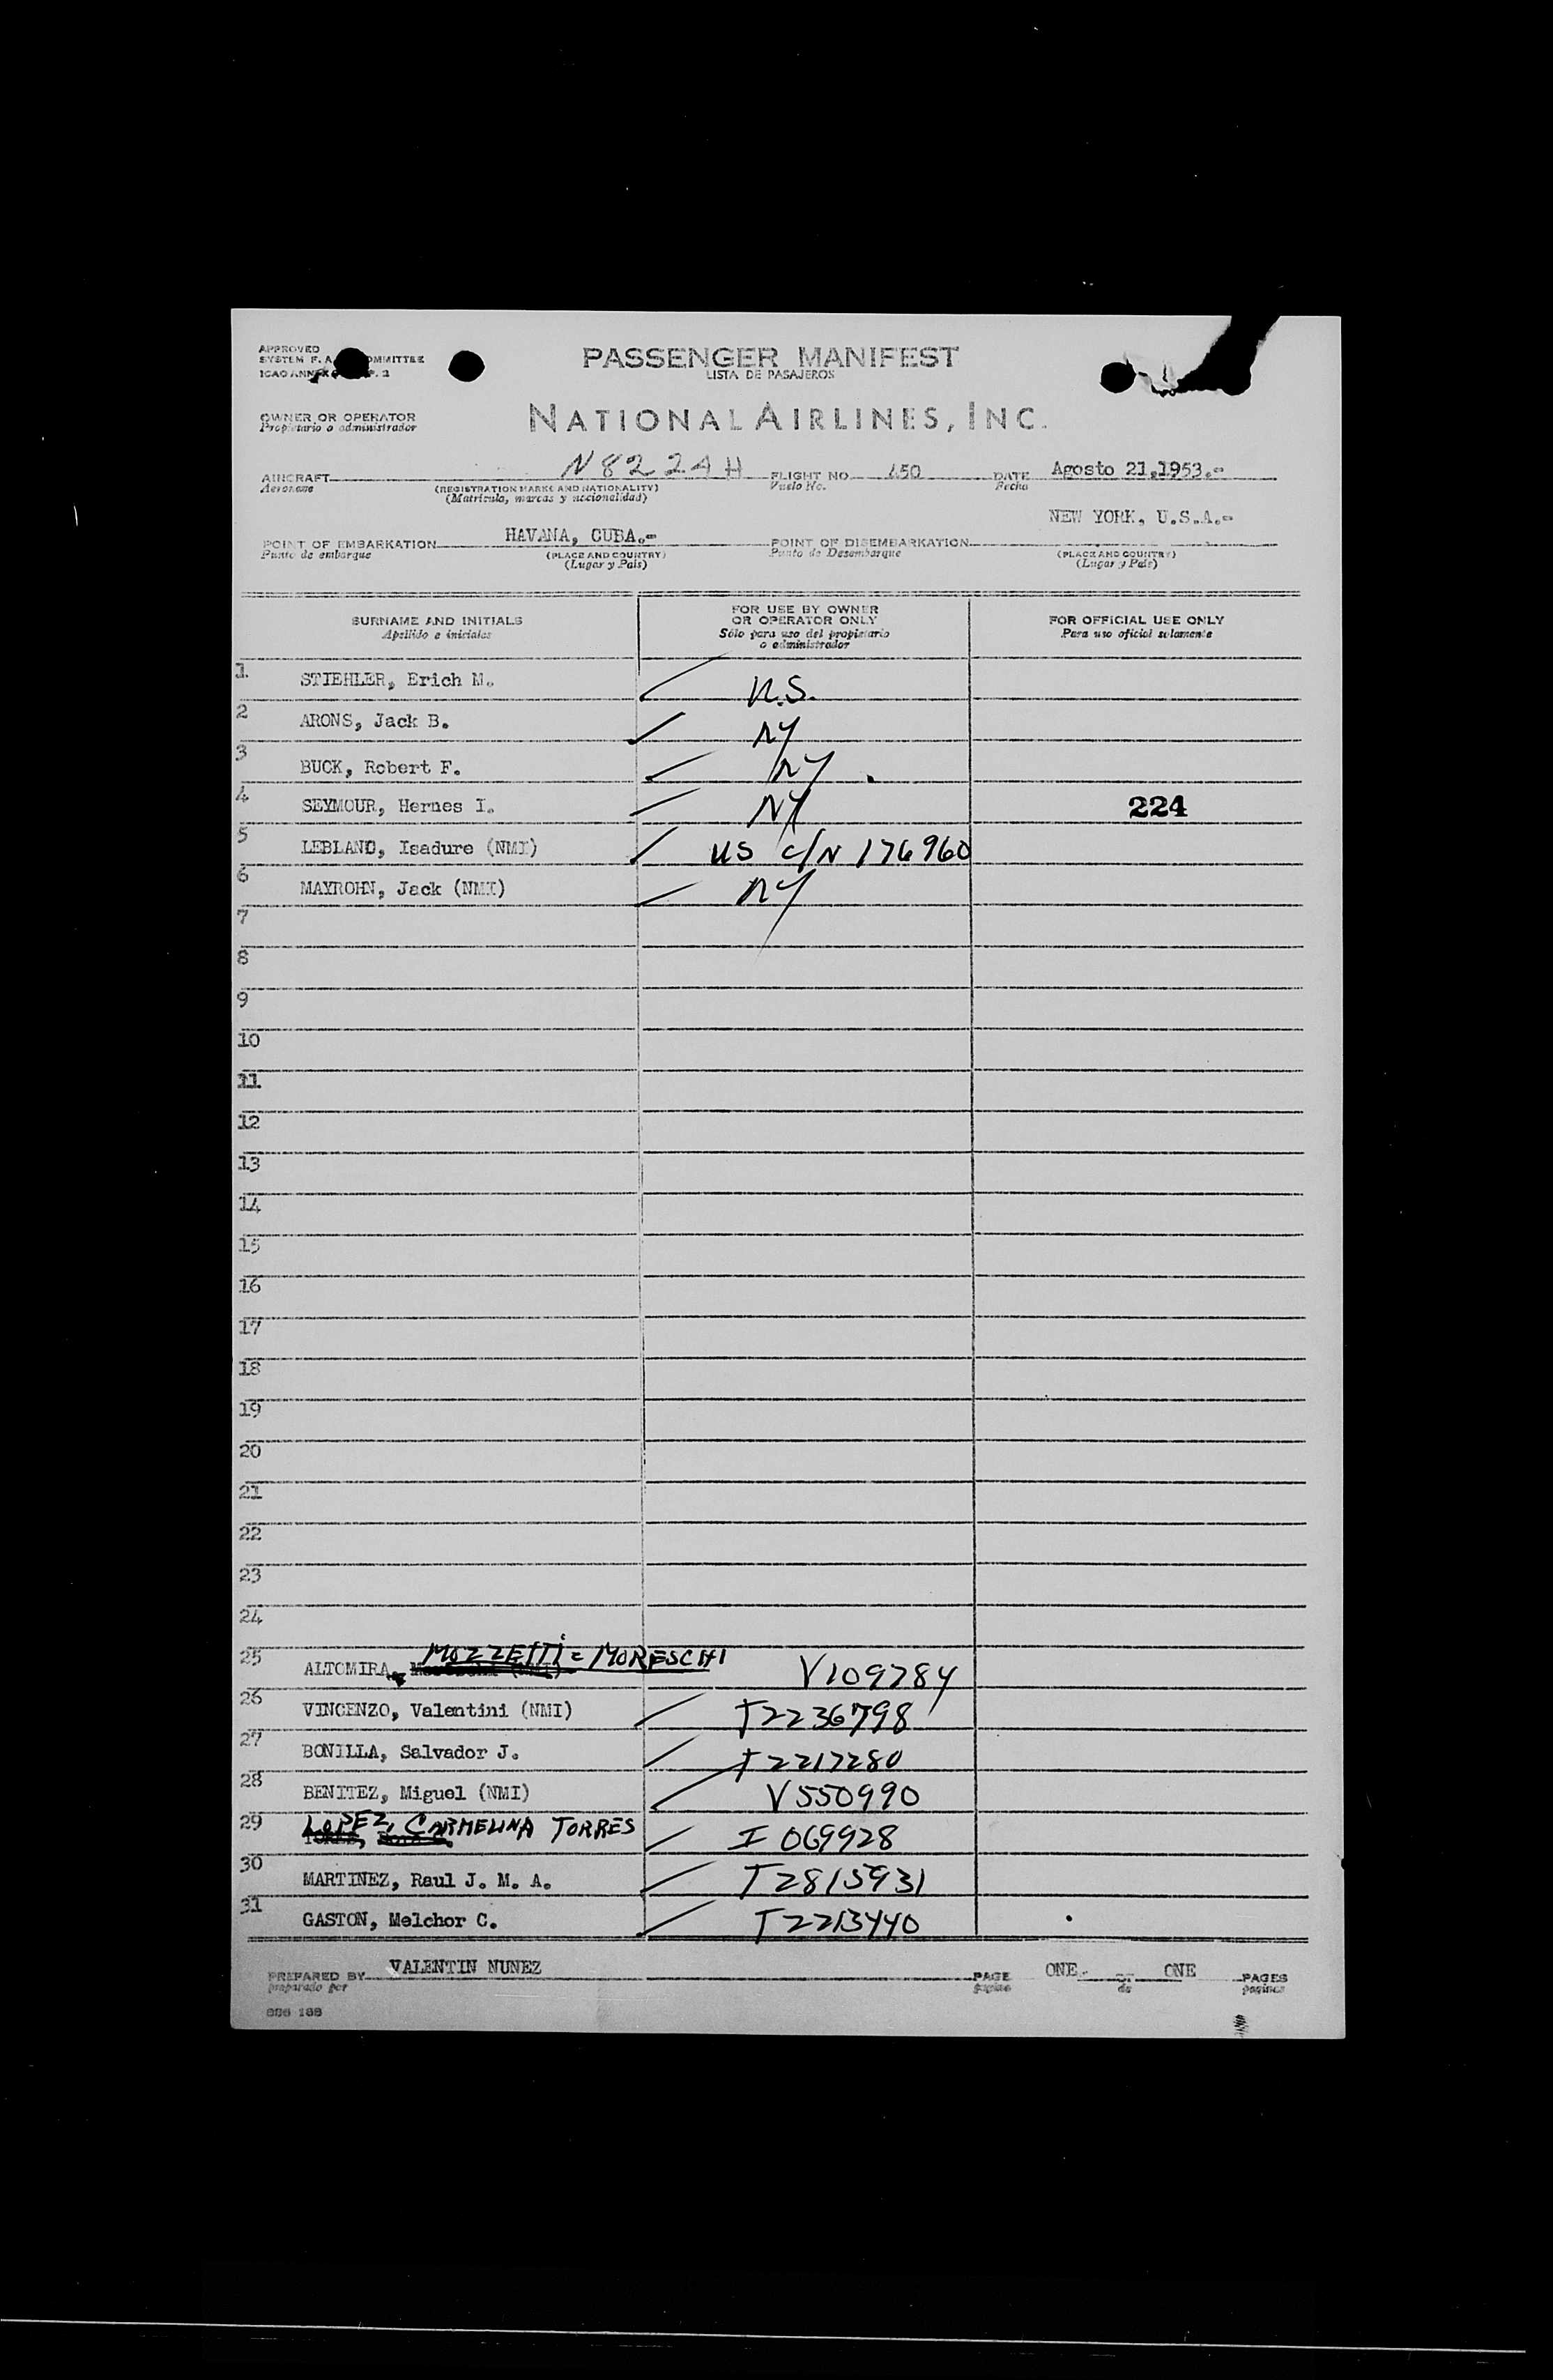 APPROVED
SYSTEM F. A. COMMITTEE
ICAO ANNEX 2
PASSENGER MANIFEST
LISTA DE PASAJEROS
OWNER OR OPERATOR
Propietario o administrador
NATIONAL AIRLINES, INC.
AIRCRAFT N8224H FLIGHT NO. 450 DATE Agosto 21,1953.-
Aeronave (REGISTRATION MARKS AND NATIONALITY) Vuelo No. Fecha
(Matricula, marcas y nacionalidad)
NEW YORK, U.S.A.-
POINT OF EMBARKATION HAVANA, CUBA.- POINT OF DISEMBARKATION
Punto de embarque (PLACE AND COUNTRY) Punto de Desembarque (PLACE AND COUNTRY)
(Lugar y País) (Lugar y País)
SURNAME AND INITIALS FOR USE BY OWNER OR OPERATOR ONLY FOR OFFICIAL USE ONLY
Apellido e iniciales Sólo para uso del propietario o administrador Para uso oficial solamente
1. STIEHLER, Erich M. U.S.
2 ARONS, Jack B. NY
3 BUCK, Robert F. NY
4 SEYMOUR, Hernes I. NY 224
5 LEBLANC, Isadure (NMI) US C/N 176960
6 MAYROHN, Jack (NMI) NY
7
8
9
10
11
12
13
14
15
16
17
18
19
20
21
22
23
24
25 ALTOMIRA, MOZZETTI = MORESCHI V109784
26 VINCENZO, Valentini (NMI) T2236798
27 BONILLA, Salvador J. T2217280
28 BENITEZ, Miguel (NMI) V550990
29 LOPEZ, CARMELINA TORRES I 069928
30 MARTINEZ, Raul J. M. A. T2815931
31 GASTON, Melchor C. T2213440
PREPARED BY VALENTIN NUNEZ PAGE ONE OF ONE PAGES
preparado por página de páginas